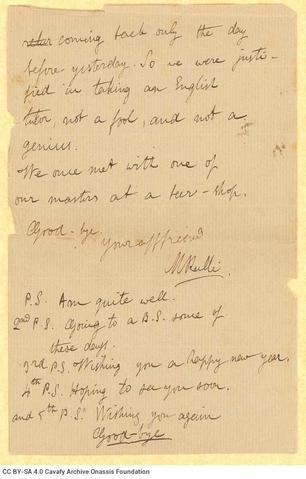 coming back only the day
before yesterday. So we were justi-
fied in taking an English
tutor not a fool, and not a
genius.
We once met with one of
our masters at a beer-shop.
Good-bye.
Your aff friend
MRalli.
P.S. Am quite well.
2nd P.S. Going to a B.S. some of
these days.
3rd P.S. Wishing you a happy new year.
4th P.S. Hoping to see you soon.
and 5th P.S. Wishing you again
Good-bye
CC BY-SA 4.0 Cavafy Archive Onassis Foundation